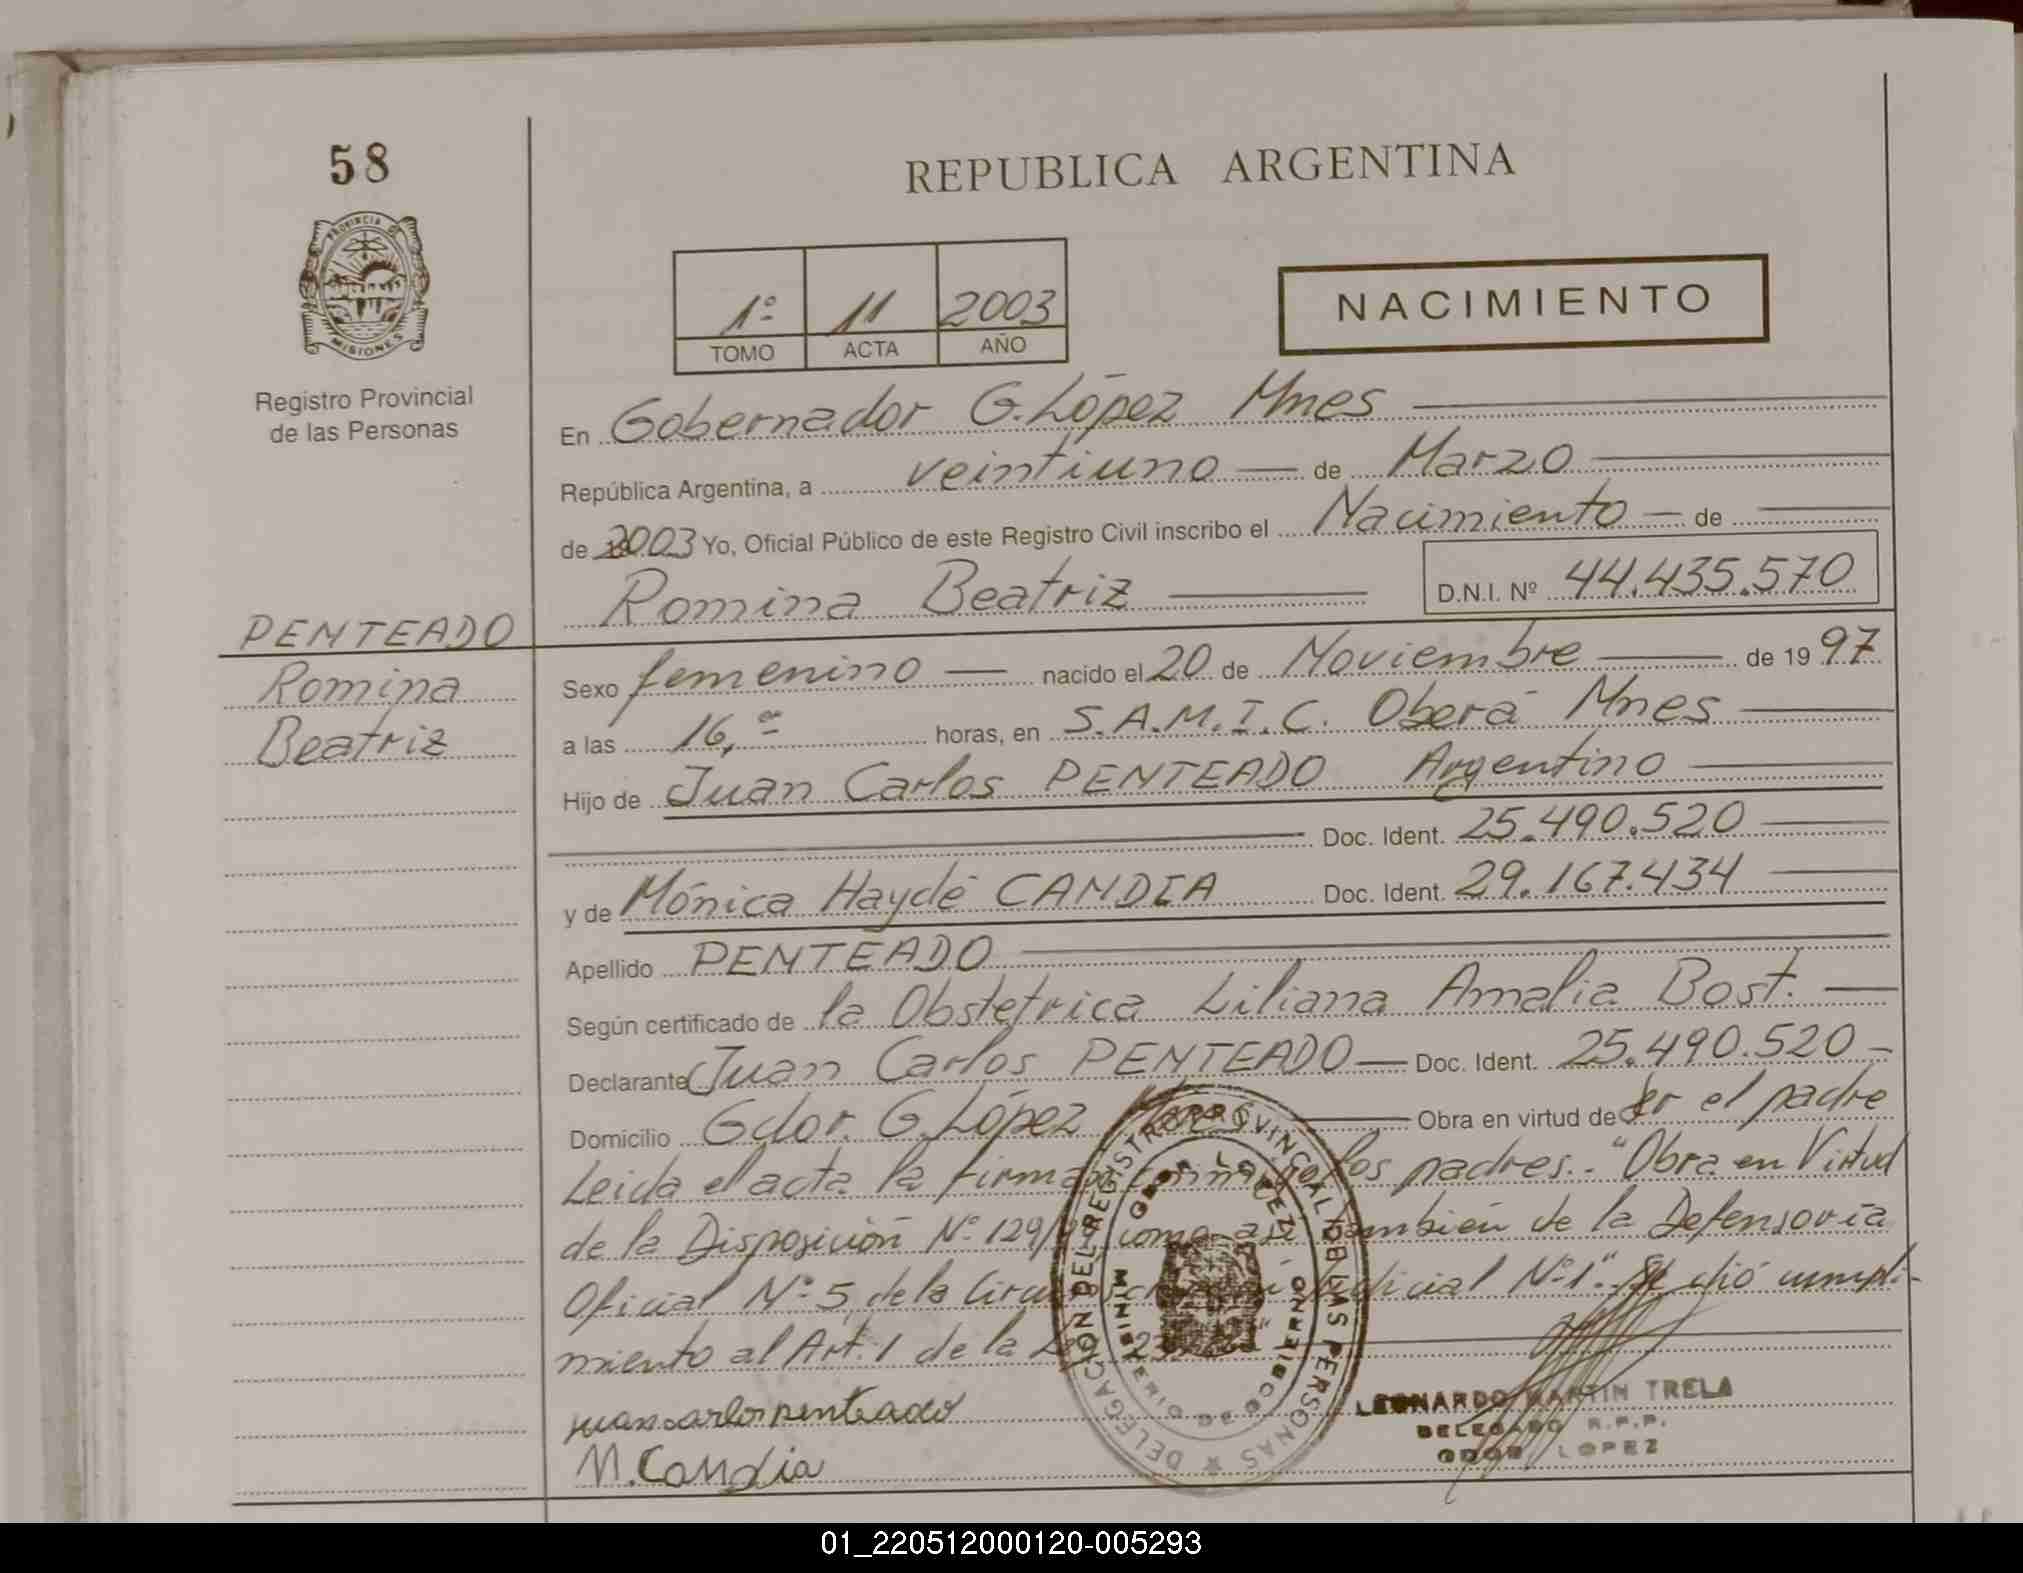 58
REPUBLICA ARGENTINA
PROVINCIA DE
MISIONES
Registro Provincial
de las Personas
1º 11 2003
TOMO ACTA AÑO
NACIMIENTO
En Gobernador G. López Mnes
República Argentina, a veintiuno de Marzo
de 2003 Yo, Oficial Público de este Registro Civil inscribo el Nacimiento de
Romina Beatriz D.N.I. Nº 44.435.570
PENTEADO
Romina
Beatriz
Sexo femenino nacido el 20 de Noviembre de 1997
a las 16,ºº horas, en S.A.M.I.C. Oberá Mnes
Hijo de Juan Carlos PENTEADO Argentino
Doc. Ident. 25.490.520
y de Mónica Haydé CANDIA Doc. Ident. 29.167.434
Apellido PENTEADO
Según certificado de la Obstetrica Liliana Amalia Bost.
Declarante Juan Carlos PENTEADO Doc. Ident. 25.490.520
Domicilio Gdor. G. López Mnes Obra en virtud de ser el padre
Leida el acta la firman los padres.- "Obra en Virtud
de la Disposición Nº 129/ como asi también de la Defensoría
Oficial Nº 5 de la Judicial Nº 1". Se dió cumpli-
miento al Art. 1 de la
juan carlos penteado
M. Candia
DELEGACION DEL REGISTRO PROVINCIAL DE LAS PERSONAS
GDOR LOPEZ
MINISTERIO DE GOBIERNO
LEONARDO MARTIN TRELA
DELEGADO R.P.P.
GDOR LOPEZ
01_220512000120-005293